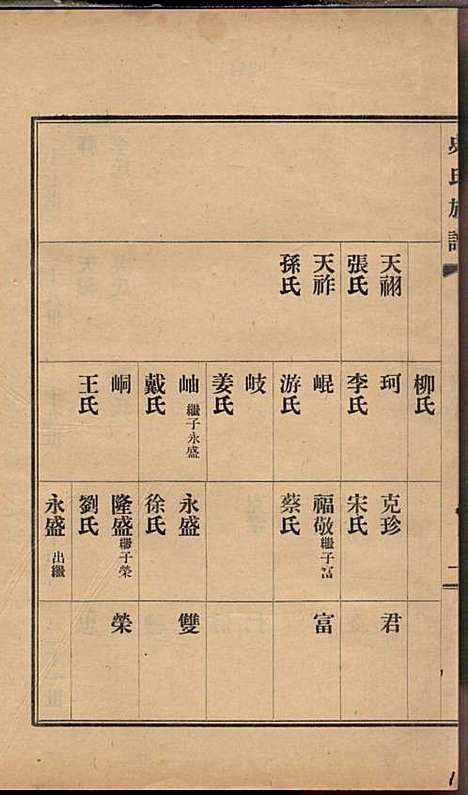 氏族譜
天祤
張氏
天祚
孫氏
柳氏
珂
李氏
崐
游氏
岐
姜氏
岫 繼子永盛
戴氏
峒
王氏
克珍
宋氏
福敬 繼子富
蔡氏
永盛
徐氏
隆盛 繼子榮
劉氏
永盛 出繼
君
富
雙
榮